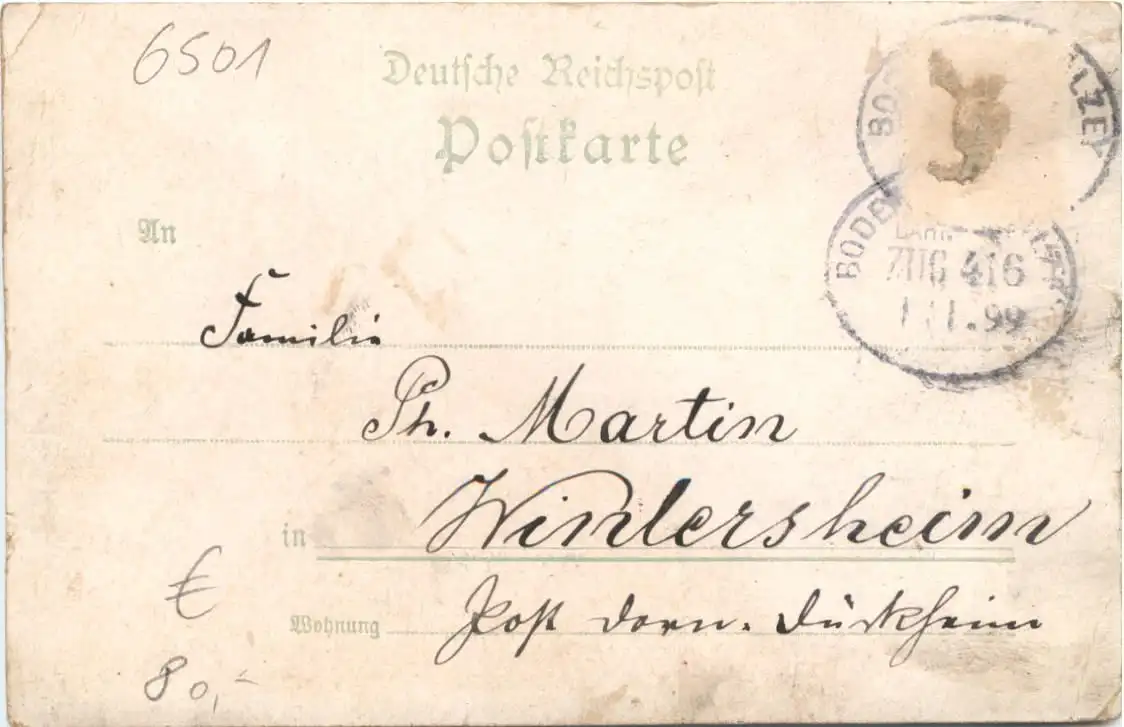 6501
Deutsche Reichspost
Postkarte
BODE
ZUG 416
99
An
Familie
Ph. Martin
in Wintersheim
Wohnung Post Dorn. Dürkheim
€
80,-